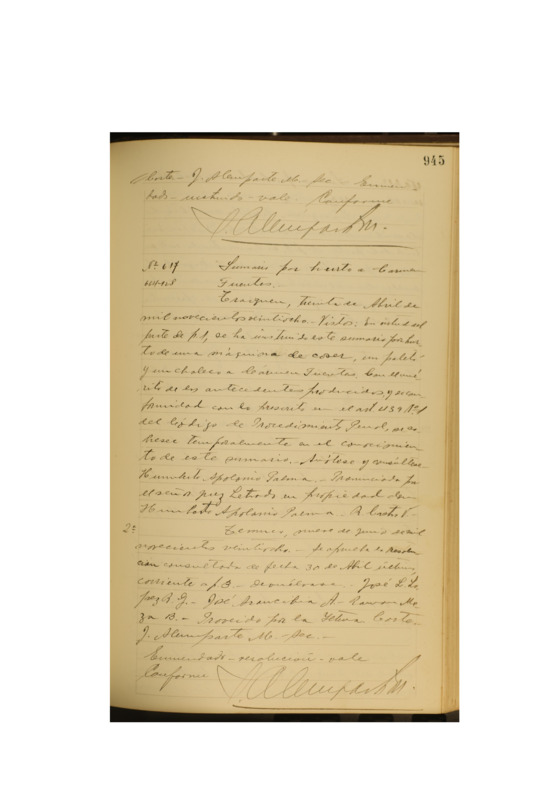 945
Corte - J. Alemparte M. - Sec - Enmen-
dado - instruido - vale. Conforme
J. Alemparte M.
Nº 617 Sumario por hurto a Carmen
Fuentes.
Traiguen, treinta de Abril de
mil novecientos veintiocho. Vistos: En virtud del
parte de f. 1, se ha instruido este sumario por hur-
to de una máquina de coser, un paletó
y un chaleco a Carmen Fuentes. Con el mé-
rito de los antecedentes producidos y de con-
formidad con lo prescrito en el art 439 Nº 1
del Código de Procedimiento Penal, se so-
bresee temporalmente en el conocimien-
to de este sumario. Anótese y consúltese
Humberto Apolonio Palma. - Pronunciada por
el señor juez Letrado en propiedad don
Humberto Apolonio Palma. - R
2ª Temuco, nueve de junio de mil
novecientos veintiocho. - Se aprueba la resolu-
cion consultada de fecha 30 de Abril último,
corriente a f. 3. - Devuélvase. - José L Lo-
pez - José A. - Ramon Me-
za B. - Proveido por la Iltma Corte -
J. Alemparte M. - Sec. -
Enmendado - resolucion - vale
Conforme
J. Alemparte M.